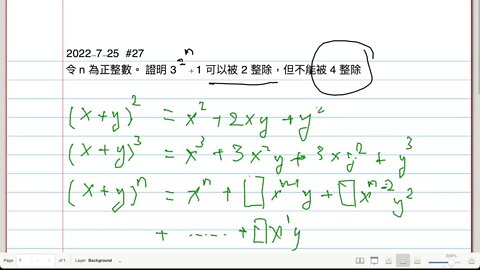 2022-7-25 #27
令 n 為正整數。 證明 3^2^n + 1 可以被 2 整除，但不能被 4 整除
(x+y)^2 = x^2 + 2xy + y^2
(x+y)^3 = x^3 + 3x^2y + 3xy^2 + y^3
(x+y)^n = x^n + []x^{n-1}y + []x^{n-2}y^2
+ ...... + []x^1y
Page 1 of 1 Layer Background